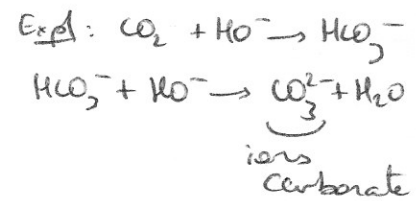 Expl : CO₂ + HO⁻ → HCO₃⁻
HCO₃⁻ + HO⁻ → CO₃²⁻ + H₂O
ions
carbonate